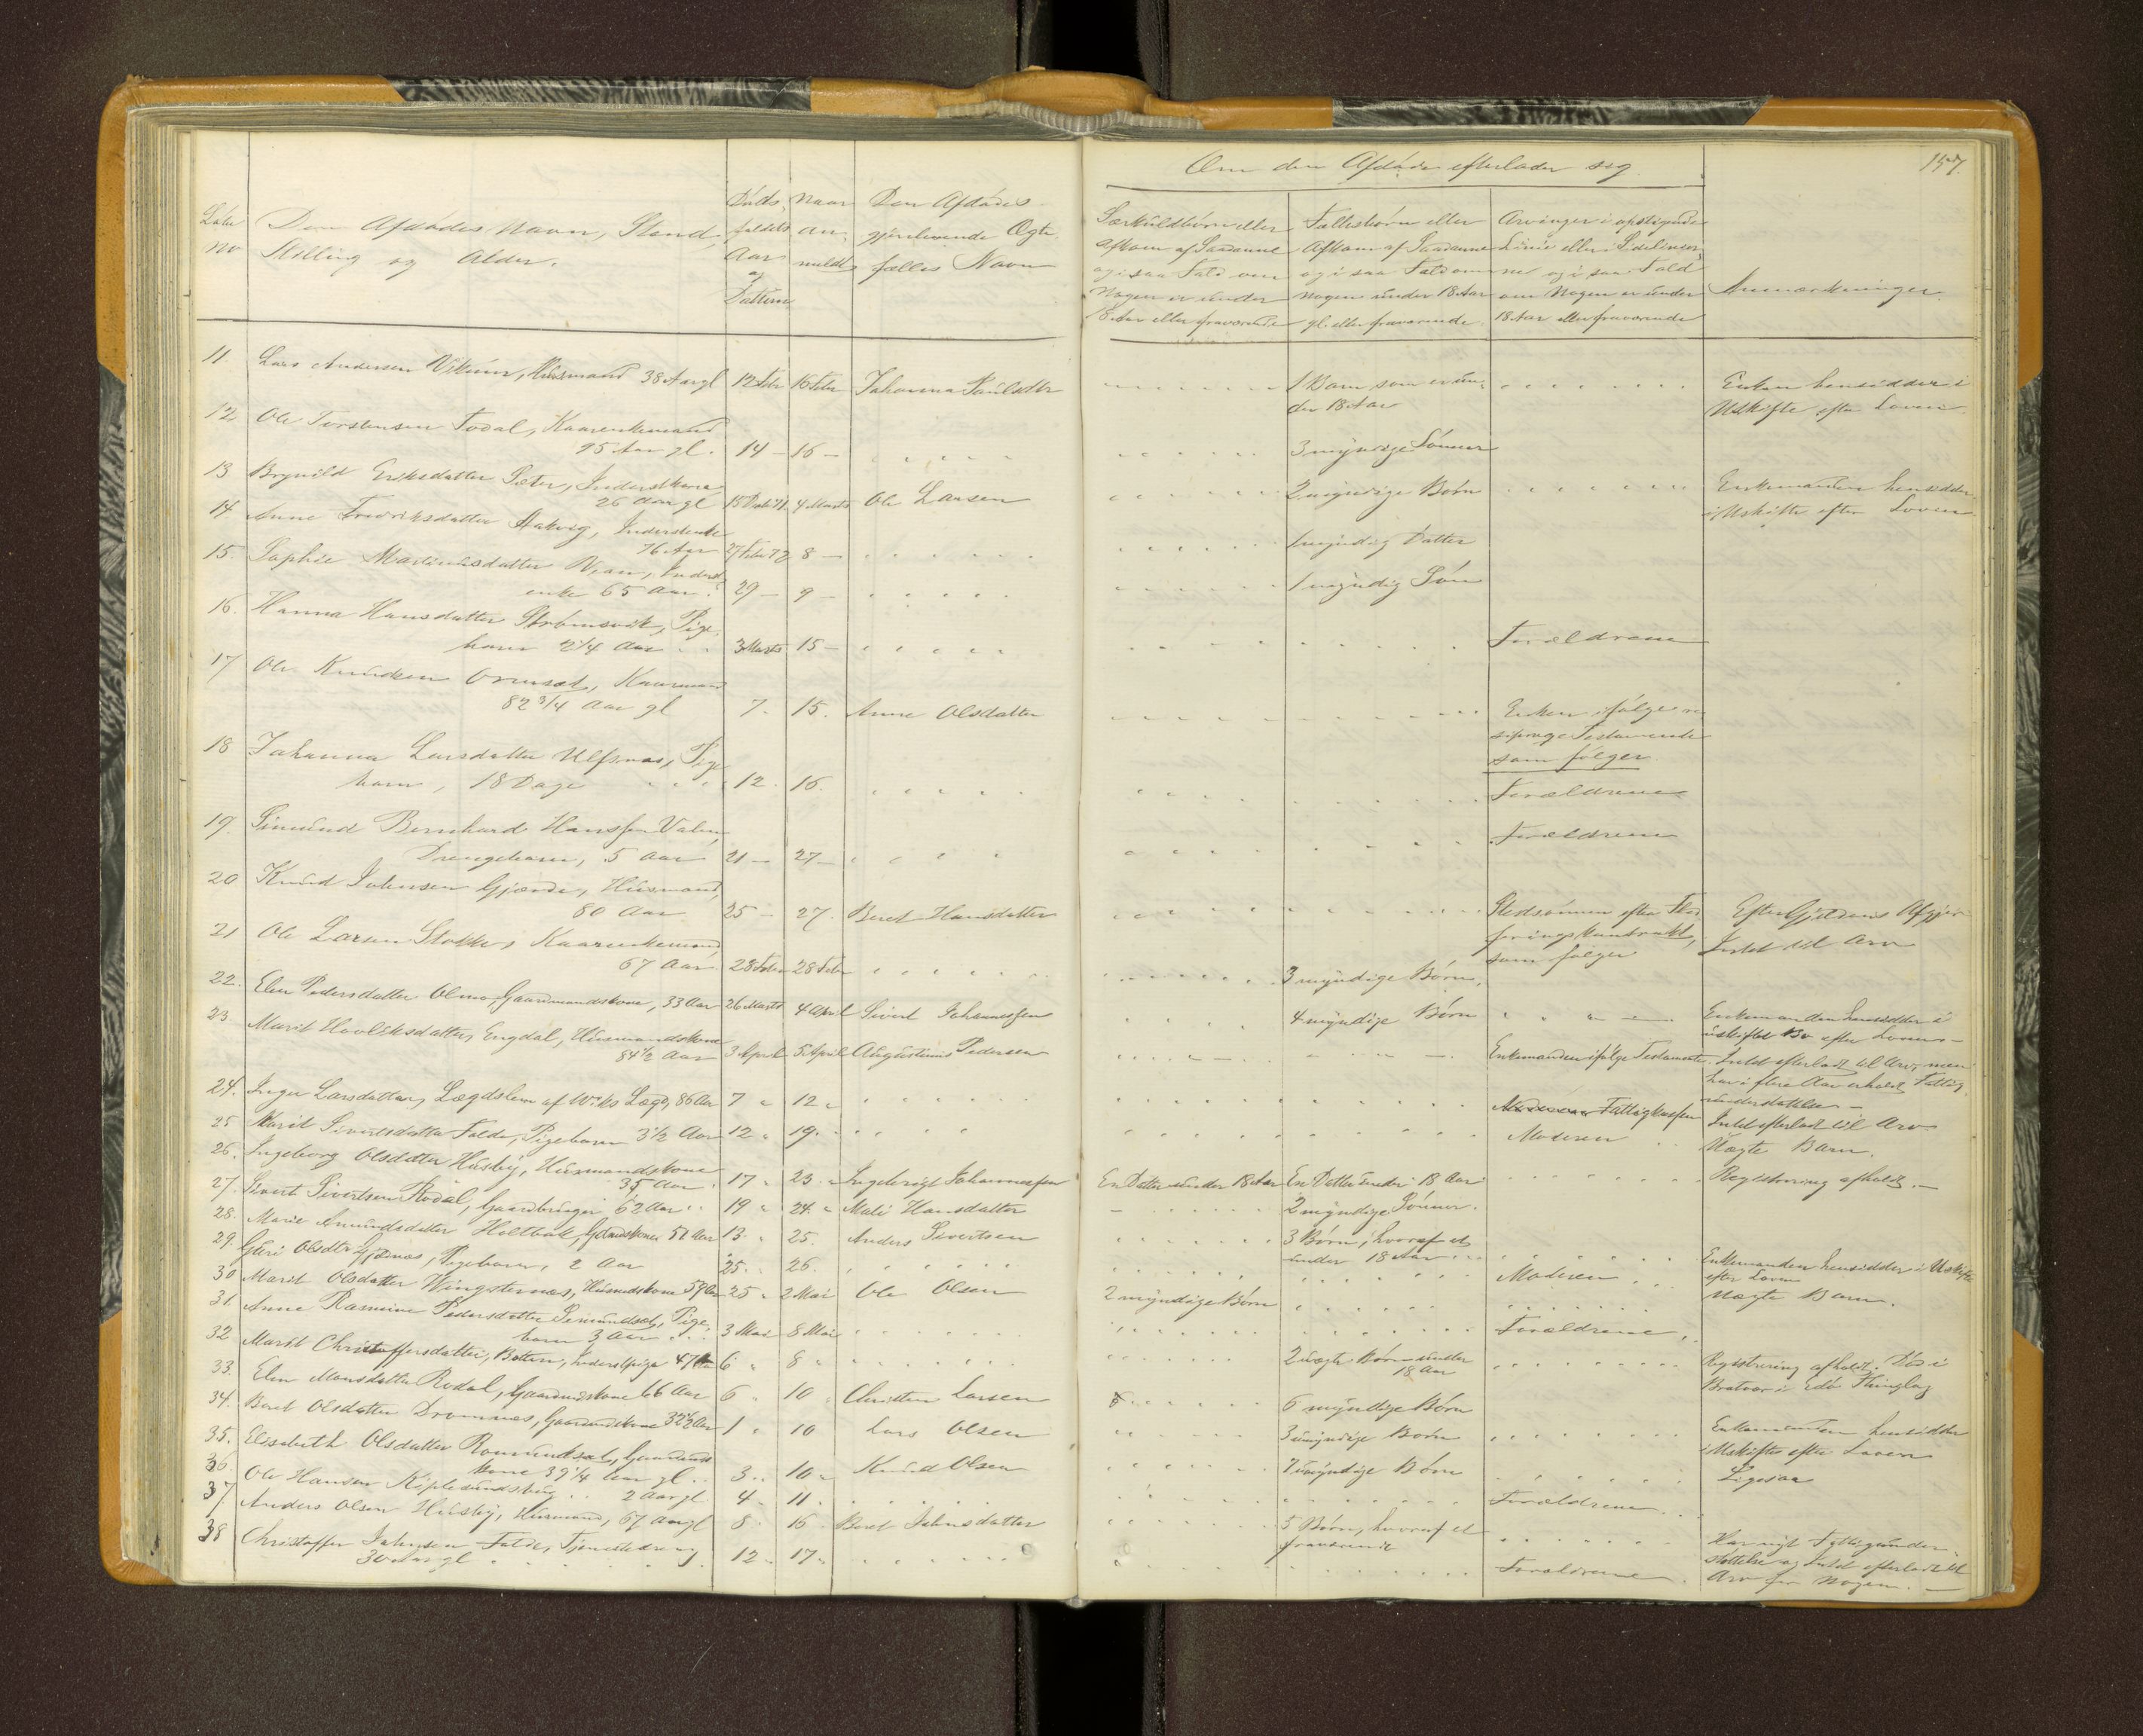 157.
Om den Afdøde efterlader sig
Løbe No
Den Afdødes Navn, Stand, Stilling og Alder.
Dødsfaldets Aar og Datum
Naar anmeldt
Den Afdødes gjenlevende Ægtefælles Navn
Særkuldbørn eller Afkom af Saadanne og i saa Fald om Nogen er under 18 Aar eller fraværende
Fællesbørn eller Afkom af Saadanne og i saa Fald om nogen under 18 Aar gl. eller fraværende
Arvinger i opstigende Linie eller Sidelinier og i saa Fald om Nogen er under 18 Aar eller fraværende
Anmærkninger.
11. Lars Andersen Husmand 38 Aar gl 12 Febr 16 Febr Johanna Paulsdtr 1 Barn som er under 18 Aar Enken hensidder i Uskifte efter Loven
12 Ole Torstensen Todal, Kaarenkemand
95 Aar gl. 14 - 16 - 3 myndige Sønner
13 Brynild Eriksdatter Sæter, Inderstkone
26 Aar gl 15 4 Marts Ole Larsen 2 Børn Enkemanden hensidder i Uskifte efter Loven
14 Anne Fredriksdatter Aakvig, Inderstenke
76 Aar 27 Febr 72 8 - 1 myndig Datter
15. Sophie Martinusdatter Inderst
enke 65 Aar 29 - 9 - 1 myndig Søn
16. Hanna Hansdatter Pige
barn 2 1/4 Aar 3 Marts 15 - Forældrene
17 Ole Knudsen Ormset, Kaarmand
82 3/4 Aar gl 7. 15. Anne Olsdatter Enken ifølge Testamente som følger
18 Johanna Larsdatter Ulfsnes, Pige
barn, 18 Dage 12. 16. Forældrene
19. Simund Bernhard Hanssen
Drengebarn, 5 Aar 21 - 27 - Forældrene
20 Knud Johnsen Gjærde, Husmand
80 Aar 25 - 27. Beret Hansdatter Stedsønnen efter kontrakt, som følger Efter Gjældens Intet til Arv
21 Ole Larsen Stokke, Kaarenkemand
67 Aar 23 Febr 28 Febr 3 myndige Børn
22. Elen Pedersdatter Olmo, Gaardmandskone, 33 Aar 26 Marts 4 April Sivert Johannessen 4 myndige Børn Enkemanden hensidder i uskiftet Bo efter Loven -
23 Marit Engdal, Husmandskone
84 1/2 Aar 3 April 5 April Augustinus Pedersen Enkemanden ifølge Testamente Intet efterladt til Arv, men har i flere Aar erholdt Fattigunderstøttelse -
24. Inger Larsdatter, Lægdslem af Lægd, 86 Aar 7 " 12 " Fattigkassen Intet efterladt til Arv
25 Marit Sivertsdatter Falde, Pigebarn 3 1/2 Aar 12 " 19. Moderen Uægte Barn.
26. Ingeborg Olsdatter Husby, Husmandskone
35 Aar 17 " 23. " Ingebrigt Johannessen En Datter under 18 Aar En Datter under 18 Aar Registrering afholdt. -
27. Sivert Sivertsen Rodal, Gaardbruger 62 Aar 19 " 24. " Mali Hansdatter 2 myndige Sønner.
28. Marie Amundsdatter Holtbak, Gdmdskone 57 Aar 13. " 25. Anders Sivertsen 3 Børn, hvoraf et under 18 Aar Enkemanden hensidder i Uskifte efter Loven
29. Guri Olsdtr Gjernæs, Pigebarn, 2 Aar 25. 26. Moderen Uægte Barn.
30 Marit Olsdatter Wingsternes, Husmdskone 59 Aar 25 " 2 Mai Ole Olsen 2 myndige Børn
31. Anne Rasmine Pedersdatter Simundset, Pige
barn 3 Aar 3 Mai 8 Mai Forældrene
32 Marit Christoffersdatter, Botten, Inderstpige 47 Aar 6 " 8 " 2 uægte Børn under 18 Aar Registrering afholdt. Død i Bratvær i Edø Thinglag
33. Elen Monsdatter Rodal, Gaardmdskone 66 Aar 6 " 10 " Christen Larsen 6 myndige Børn
34. Beret Olsdatter Dromnes, Gaardmdskone 32 1/2 Aar 1 " 10 Lars Olsen 3 umyndige Børn Enkemanden hensidder i Uskifte efter Loven
35. Elisabeth Olsdatter Romundset, Gaardmands
kone 39 1/4 Aar gl 3 " 10 " Knud Olsen 7 umyndige Børn Ligesaa
36 Ole Hansen 2 Aar gl. 4 " 11. Forældrene
37. Anders Olsen Husby, Husmand, 67 Aar gl 8 " 16 Beret Johnsdatter 5 Børn, hvoraf et fraværende Har nydt Fattigunderstøttelse og Intet efterladt til Arv for Nogen. -
38 Christoffer Johnsen Falde, Tjenestedreng
30 Aar gl 12 " 17 " Forældrene